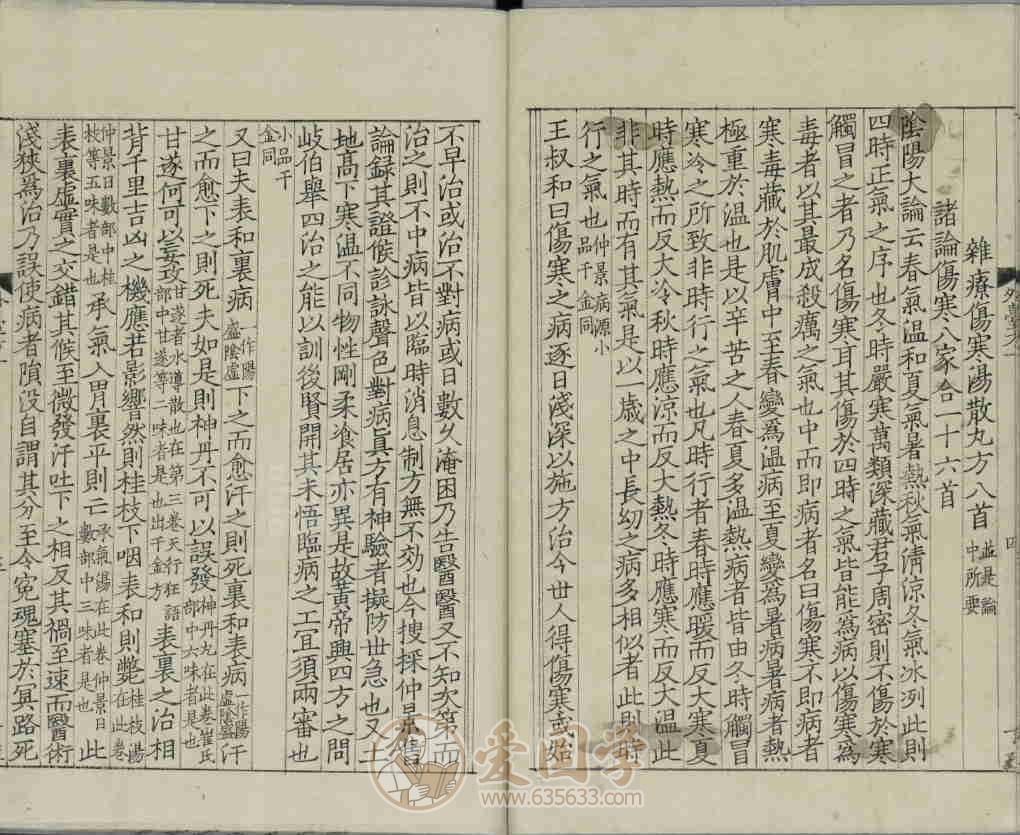 雜療傷寒湯散丸方八首 並是論中所要
諸論傷寒八家合一十六首
陰陽大論云春氣温和夏氣暑熱秋氣清涼冬氣冰冽此則
四時正氣之序也冬時嚴寒萬類深藏君子周密則不傷於寒
觸冒之者乃名傷寒耳其傷於四時之氣皆能為病以傷寒為
毒者以其最成殺癘之氣也中而即病者名曰傷寒不即病者
寒毒藏於肌膚中至春變為温病至夏變為暑病暑病者熱
極重於温也是以辛苦之人春夏多温熱病者皆由冬時觸冒
寒冷之所致非時行之氣也凡時行者春時應暖而反大寒夏
時應熱而反大冷秋時應涼而反大熱冬時應寒而反大温此
非其時而有其氣是以一歲之中長幼之病多相似者此則時
行之氣也 仲景病源小品千金同
王叔和曰傷寒之病逐日淺深以施方治今世人得傷寒或始
不早治或治不對病或日數久淹困乃告醫醫又不知次第而
治之則不中病皆以臨時消息制方無不効也今搜採仲景舊
論録其證候診詠聲色對病真方有神驗者擬防世急也又土
地高下寒温不同物性剛柔飡居亦異是故黃帝興四方之問
岐伯舉四治之能以訓後賢開其未悟臨病之工宜須兩審也
小品千金同
又曰夫表和裏病 一作陽盛陰虛 下之而愈汗之則死裏和表病 一作陽虛陰盛 汗
之而愈下之則死夫如是則神丹不可以誤發 神丹丸在此卷崔氏部中六味者是也
甘遂何可以妄攻 甘遂者水導散也在第三卷天行狂語部中甘遂等二味者是也出千金方 表裏之治相
背千里吉凶之機應若影響然則桂枝下咽表和則斃 桂枝湯在此卷
仲景日數部中桂枝等五味者是也 承氣入胃裏平則亡 承氣湯在此卷仲景日數部中三味者是也 此
表裏虛實之交錯其候至微發汗吐下之相反其禍至速而醫術
淺狹為治乃誤使病者隕没自謂其分至今寃魂塞於冥路死
愛國學
www.635633.com